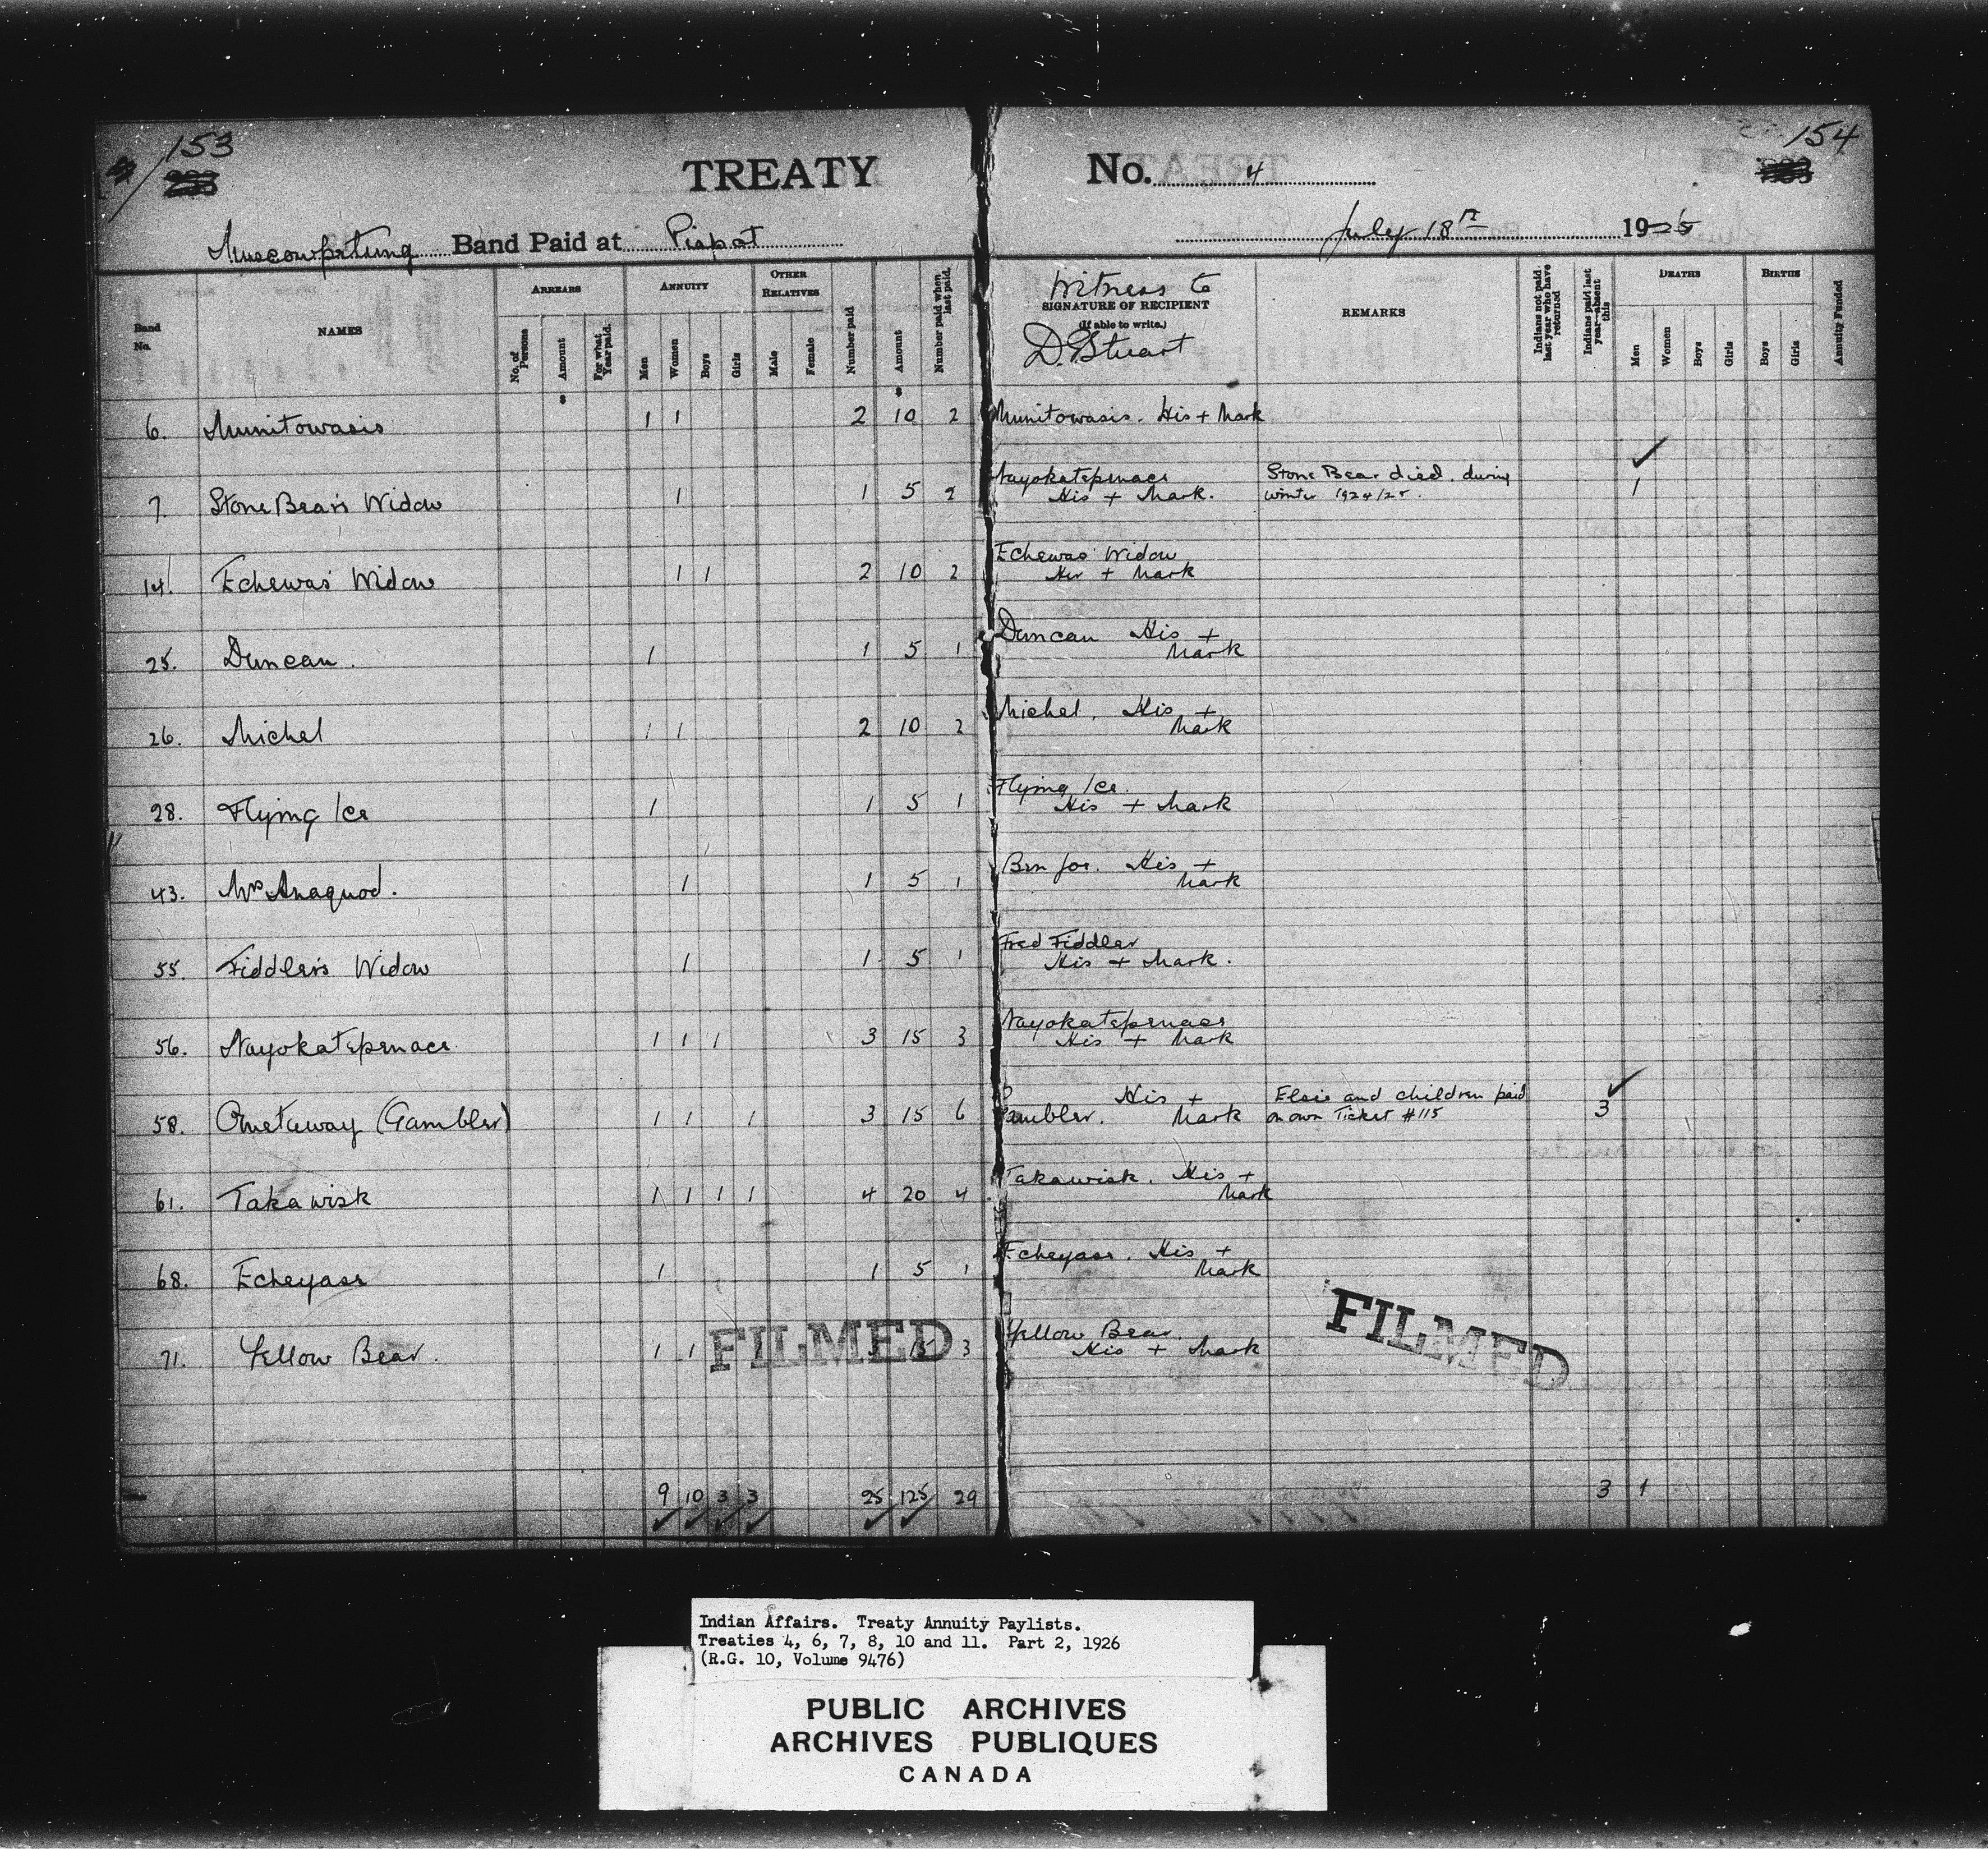 153
154
TREATY No. 4
Muscowpetung Band Paid at Piapot July 18th 1925
Band No. NAMES ARREARS No. of Persons Amount For what Year paid. ANNUITY Men Women Boys Girls OTHER RELATIVES Male Female Number paid Amount Number paid when last paid. Witness to SIGNATURE OF RECIPIENT (If able to write.) D. Stuart REMARKS Indians not paid last year who have returned Indians paid last year—absent this DEATHS Men Women Boys Girls BIRTHS Boys Girls Annuity Funded
$ $
6. Munitowasis 1 1 2 10 2 Munitowasis. His + Mark
7. Stone Bear's Widow 1 1 5 2 Nayokatepenace His + Mark. Stone Bear died during winter 1924/25. 1
14. Echewas' Widow 1 1 2 10 2 Echewas' Widow Her + Mark
25. Duncan. 1 1 5 1 Duncan His + Mark
26. Michel 1 1 2 10 2 Michel. His + Mark
28. Flying Ice 1 1 5 1 Flying Ice. His + Mark
43. Mrs Anaquod. 1 1 5 1 Ben Joe. His + Mark
55. Fiddler's Widow 1 1 5 1 Fred Fiddler His + Mark.
56. Nayokatepenace 1 1 1 3 15 3 Nayokatepenace His + Mark
58. (Gambler) 1 1 1 3 15 6 Gambler. His + Mark Elsie and children paid on own Ticket #115 3
61. Takawisk 1 1 1 1 4 20 4 Takawisk. His + Mark
68. Echeyass 1 1 5 1 Echeyass. His + Mark
71. Yellow Bear. 1 1 3 15 3 Yellow Bear. His + Mark
FILMED FILMED
9 10 3 3 25 125 29 3 1
Indian Affairs. Treaty Annuity Paylists.
Treaties 4, 6, 7, 8, 10 and 11. Part 2, 1926
(R.G. 10, Volume 9476)
PUBLIC ARCHIVES
ARCHIVES PUBLIQUES
CANADA